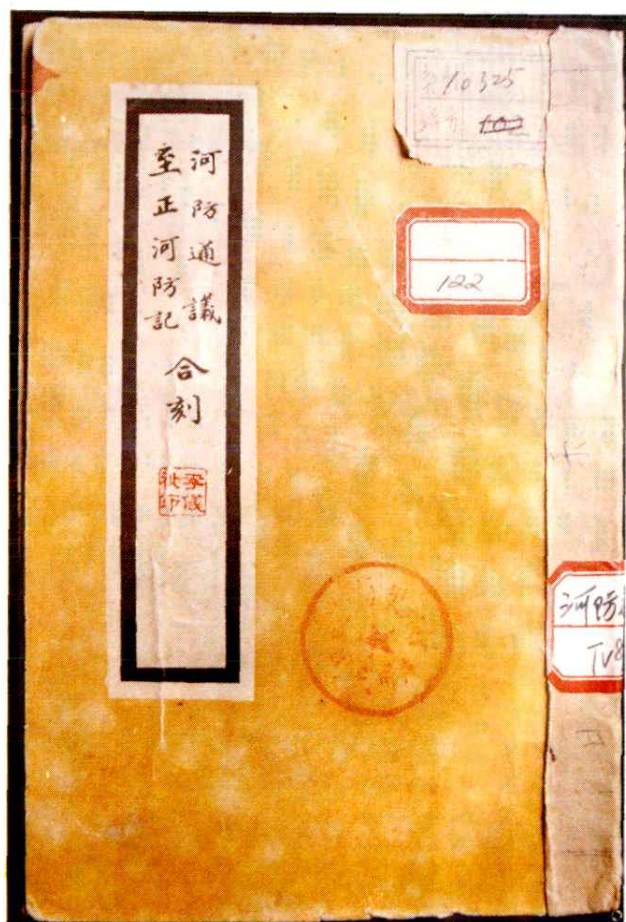 河防通議
至正河防記
合刻
李儀
祉印
10325
122
河防
TV8